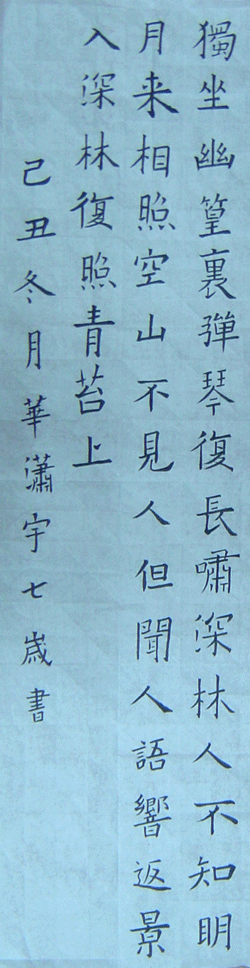 獨坐幽篁裏彈琴復長嘯深林人不知明
月来相照空山不見人但聞人語響返景
入深林復照青苔上
己丑冬月華瀟宇七歲書